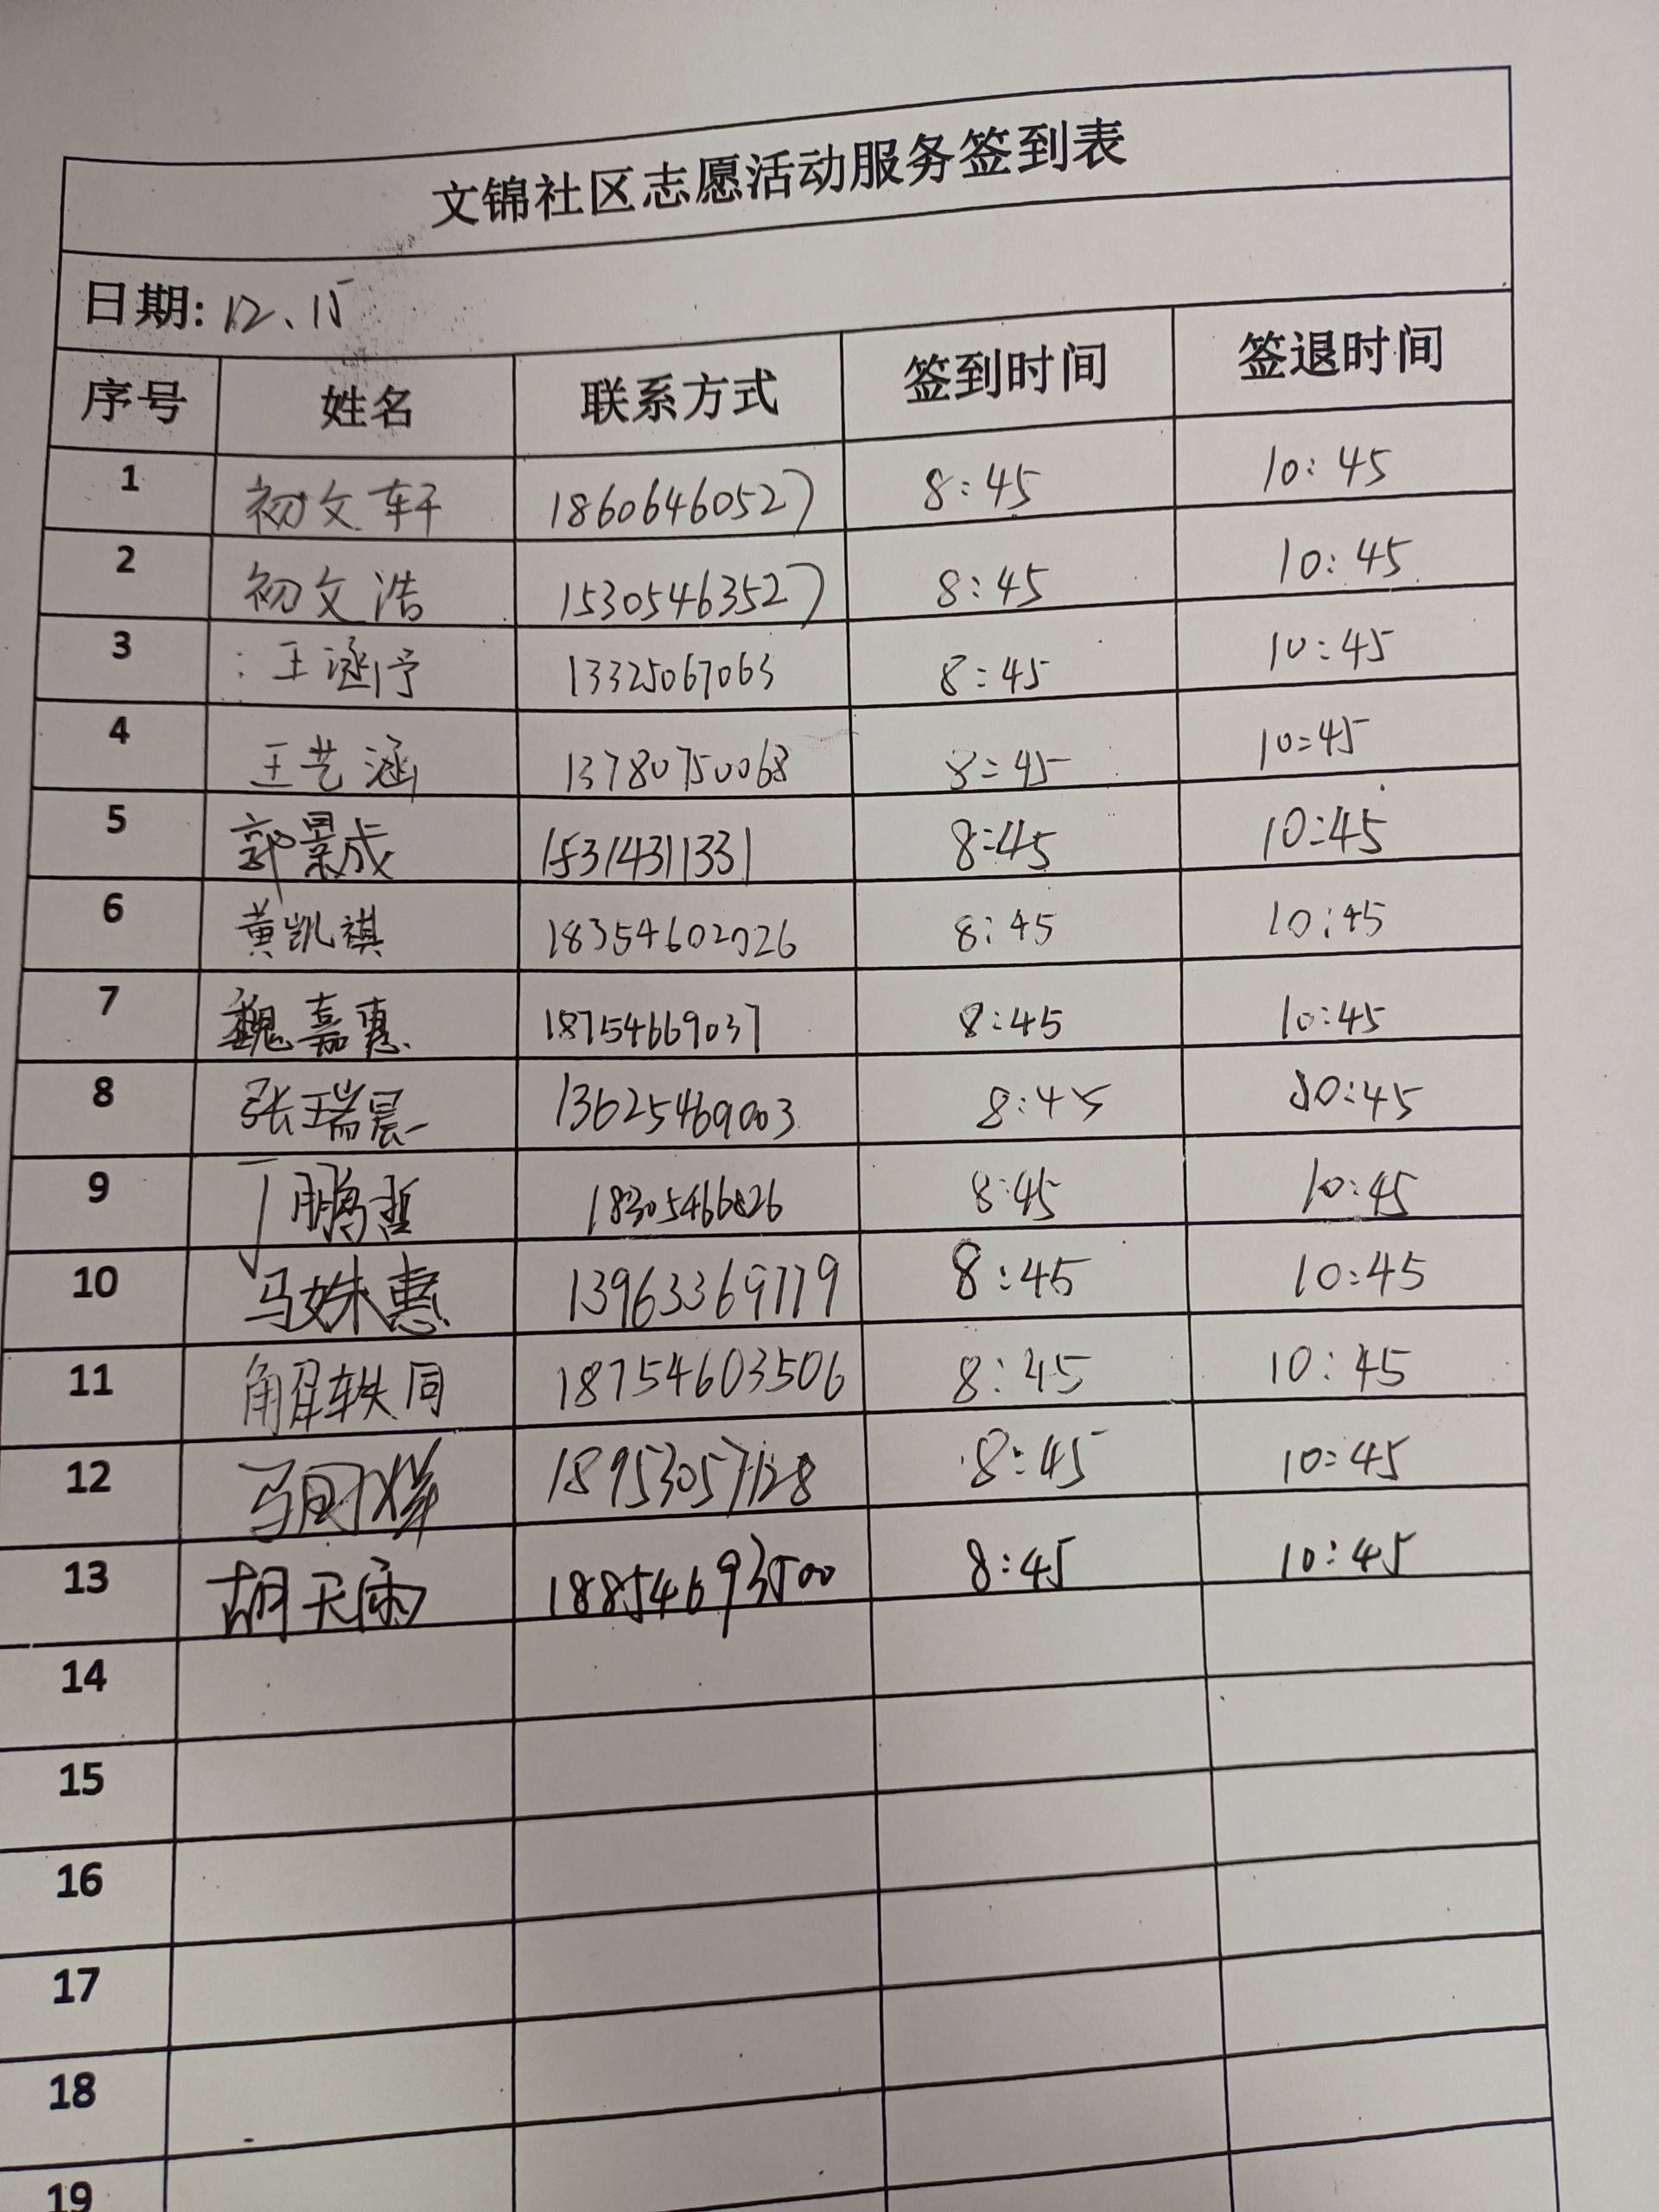 文锦社区志愿活动服务签到表
日期: 12、15
序号 姓名 联系方式 签到时间 签退时间
1 初文轩 18606460527 8:45 10:45
2 初文浩 15305463527 8:45 10:45
3 王涵伃 13325067063 8:45 10:45
4 王艺涵 13780750068 8:45 10:45
5 郭景成 15314311331 8:45 10:45
6 黄凯祺 18354602026 8:45 10:45
7 魏嘉惠 18754669037 8:45 10:45
8 张瑞晨 13625469003 8:45 10:45
9 丁鹏哲 18305466826 8:45 10:45
10 马姝惠 13963369779 8:45 10:45
11 解轶同 18754603506 8:45 10:45
12 18953057128 8:45 10:45
13 胡天雨 18854693500 8:45 10:45
14
15
16
17
18
19